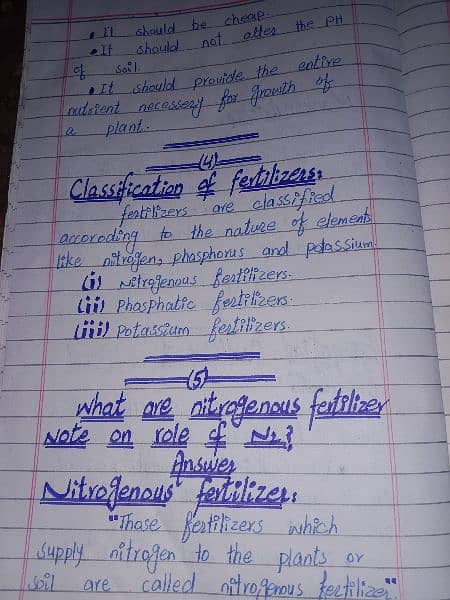 • It should be cheap.
• It should not alter the PH
of soil.
• It should provide the entire
nutrient necessery for growth of
a plant.
(4)
Classification of fertilizers:
fertilizers are classified
accoroding to the nature of elements
like nitrogen, phosphorus and potassium.
(i) Nitrogenous fertilizers.
(ii) Phosphatic fertilizers.
(iii) Potassium fertilizers.
(5)
What are nitrogenous fertilizer
Note on role of N2?
Answer
Nitrogenous fertilizer:
"Those fertilizers which
supply nitrogen to the plants or
soil are called nitrogenous fertilizer".